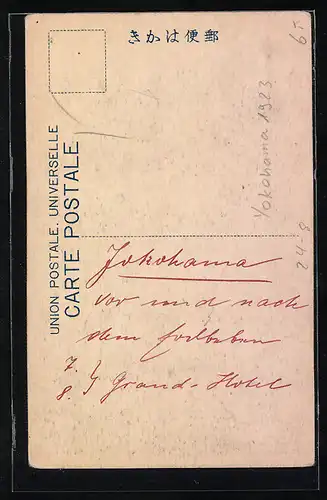 郵便はかき
UNION POSTALE. UNIVERSELLE
CARTE POSTALE
Yokohama 1923
24-8
Yokohama
vor und nach
dem Erdbeben
7.
8. Grand-Hotel